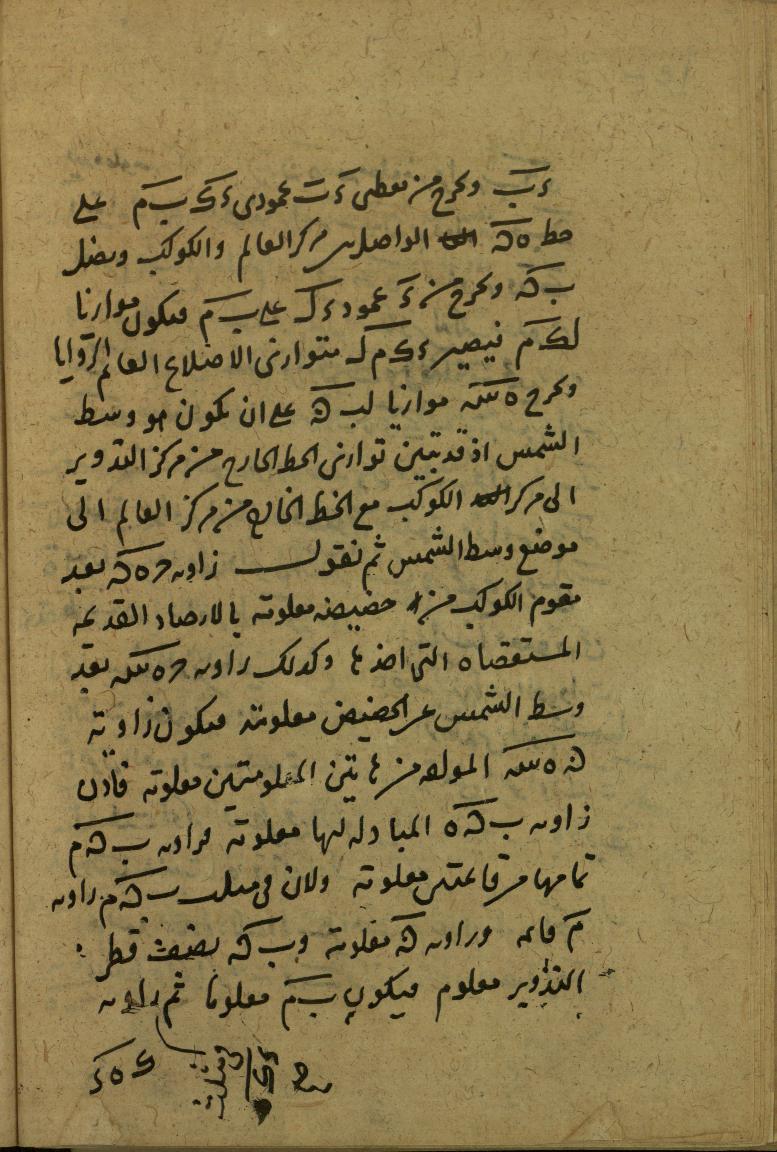 ءب ونخرج من نقطتى ء ب عمودى ءك ب م على
خط ه ۃ الواصل بين مركز العالم والكوكب ونصل
ب ۃ ونخرج من ء عمود ء ل على ب م فيكون موازيا
لك م فيصير ء ك م ل متوازى الاضلاع القائم الزوايا
ونخرج ه سه موازيا لب ۃ على ان يكون هو وسط
الشمس اذ قد تبين توازى الخط الخارج من مركز التدوير
الى مركز الكوكب مع الخط الخارج من مركز العالم الى
موضع وسط الشمس ثم نقول زاوية ح ه ۃ بعد
مقوم الكوكب من حضيضه معلومة بالارصاد القديمة
المستقصاه التى اخذها وكذلك زاوية ح ه سه بعد
وسط الشمس عن الحضيض معلومة فيكون زاوية
ۃ ه سه المولفه من هاتين المعلومتين معلومة فاذن
زاوية ب ۃ ه المبادله لها معلومة فزاوية ب ۃ م
تمامها من قائمتين معلومة ولان فى مثلث ب ۃ م زاوية
م قائمه وزاوية ۃ معلومة وب ۃ نصف قطر
التدوير معلوم فيكون ب م معلوما ثم زاوية
ء ه ك